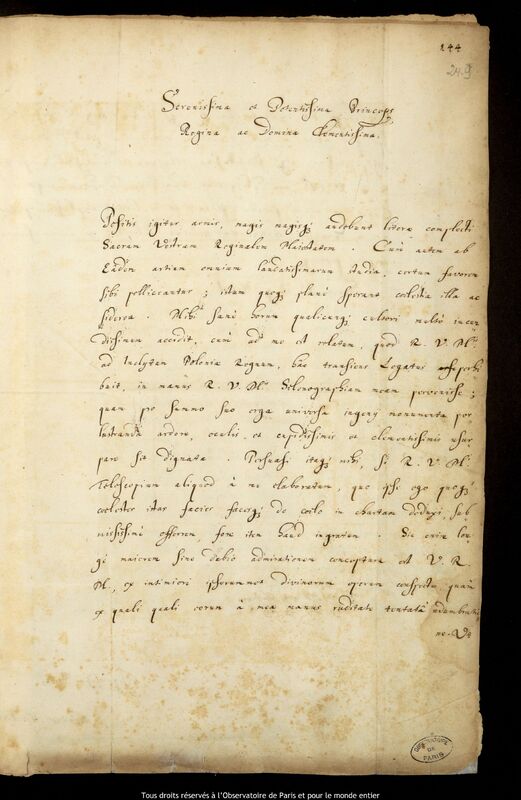 144
249.
Serenissima et Potentissima Princeps
Regina ac Domina Clementissima.
Positis igitur armis, magis magisq; audebunt literae complecti
Sacram Vestram Reginalem Maiestatem. Cum autem ab
Eadem artium omnium laudatissimarum studia, certum favorem
sibi polliceantur; istum quoq; planè sperant coelestia illa ac
siderea. Mihi sanè horum qualicunq; cultori multò iucun
dissimum accidit, cum ad me est relatum, quod R. V. M.
ad Inclytum Poloniae Regnum, hac transiens Legatus perhi
buit, in manus R. V. M. Selenographiam meam pervenisse;
quam pro summo suo erga universa ingenij monumenta per
lustranda ardore, oculis et cupidissimis et clementissimis usur
pare sit dignata. Persuasi itaq; mihi, si R. V. M.
Telescopium aliquod à me elaboratum, quo ipse ego quoq;
coelestes istas facies faces q; de coelo in chartam deduxi, sub
missimè offerrem, fore item haud ingratum. Sic enim lon
gè maiorem sine dubio admirationem conceptura est V. R.
M., ex intimiori ipsorummet divinorum operum conspectu, quàm
ex quali quali eorum à mea manus ruditate tentatâ adumbratio
ne. Ve
OBSERVATOIRE DE PARIS
Tous droits réservés à l'Observatoire de Paris et pour le monde entier